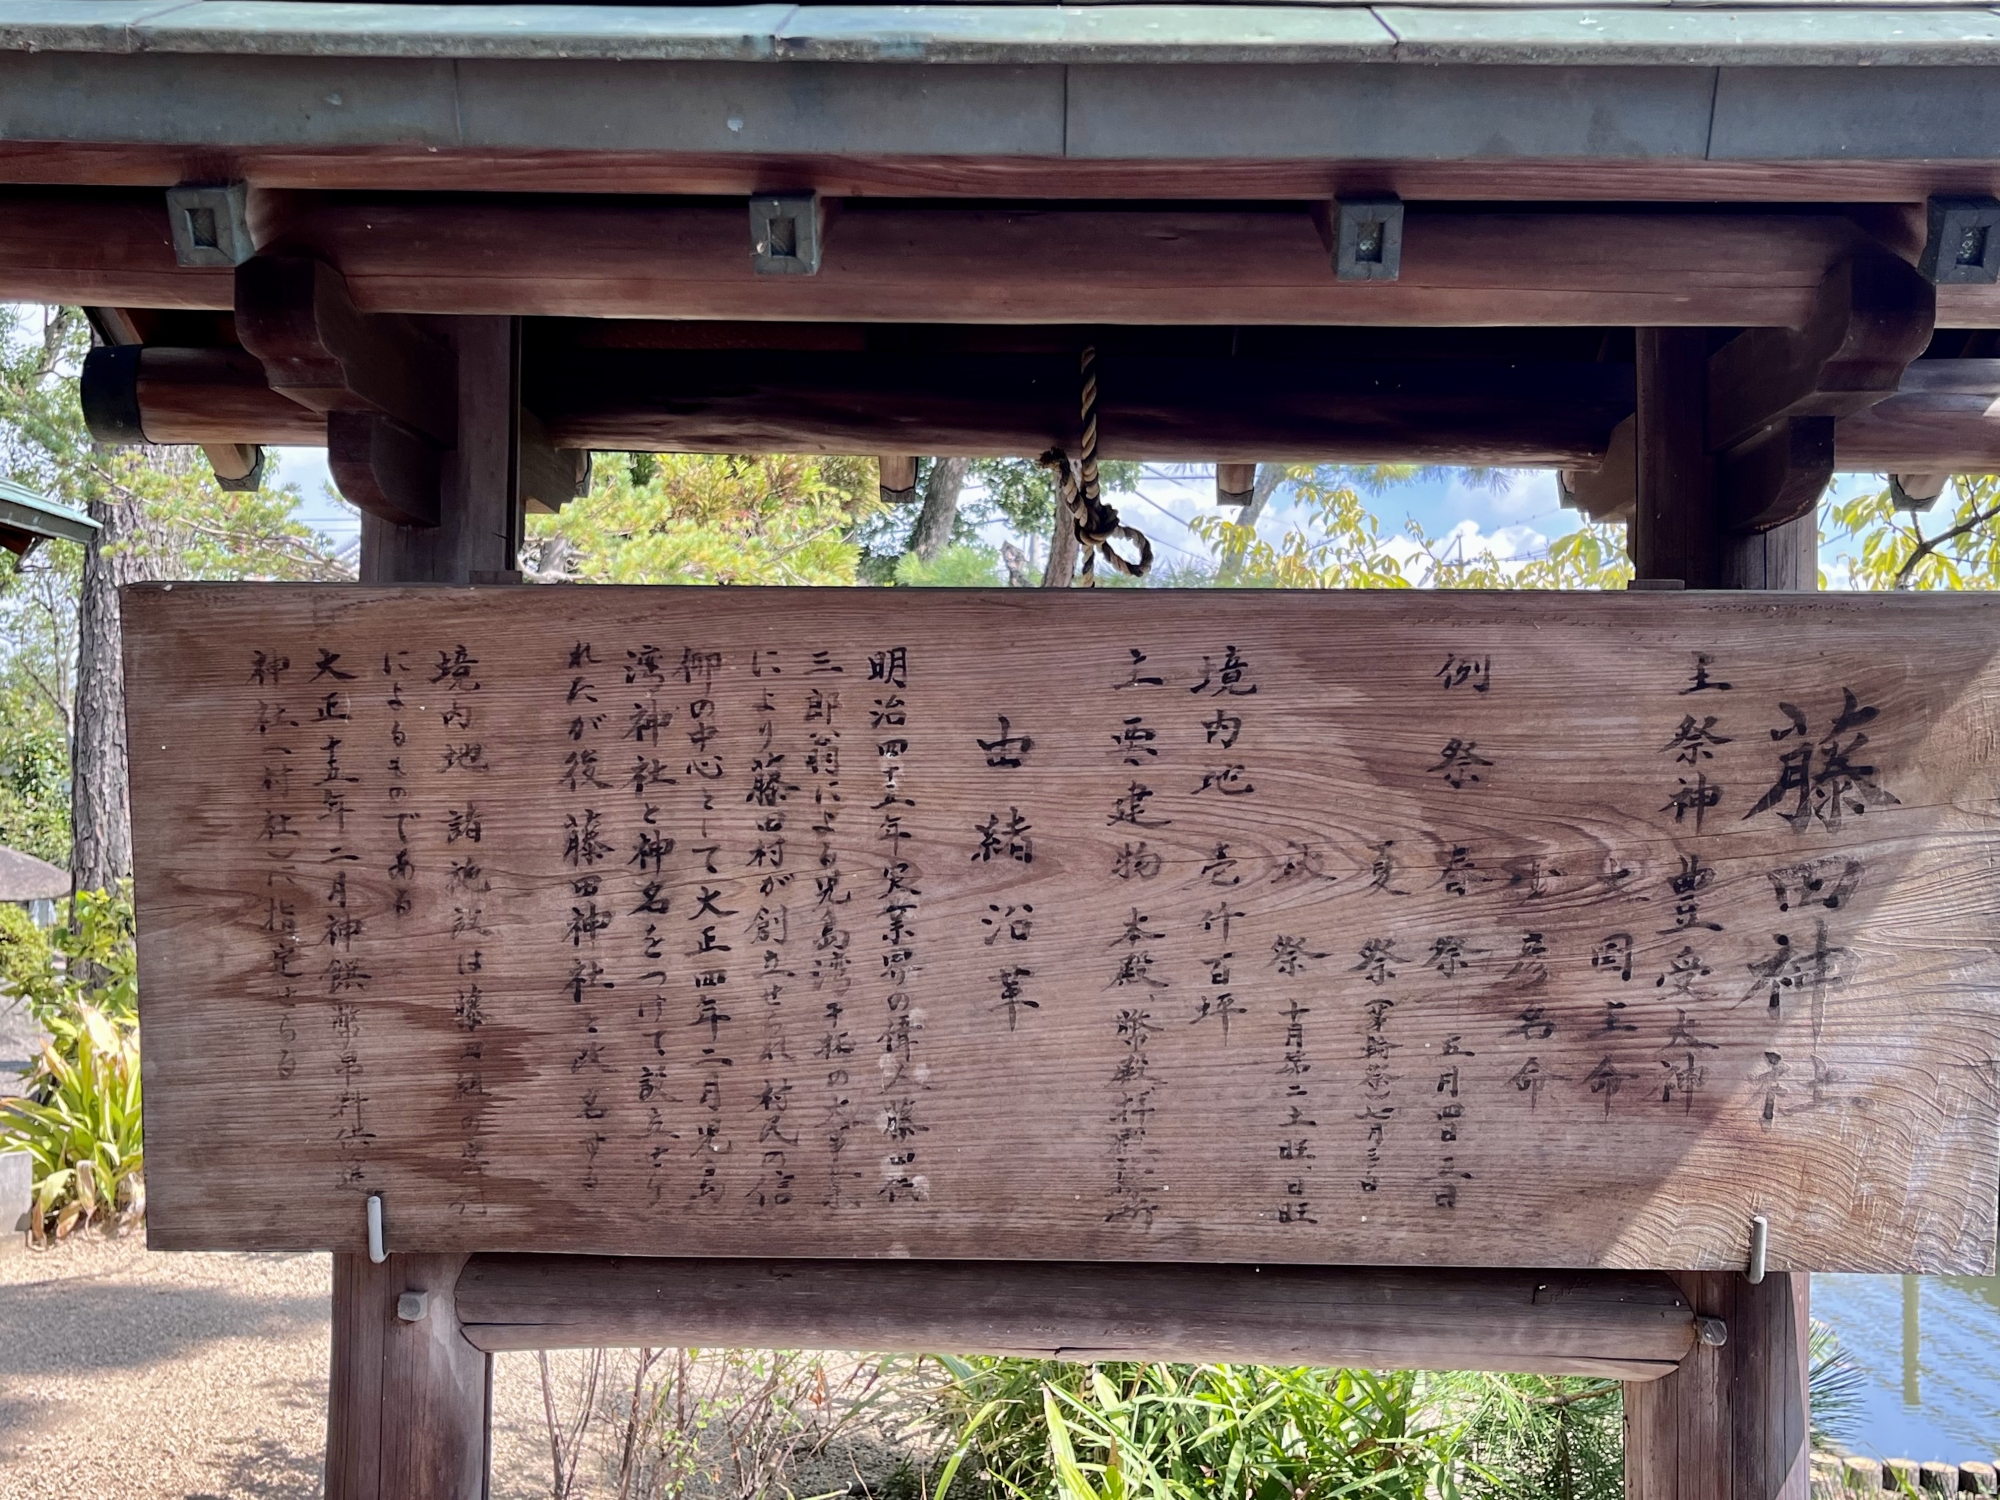 藤田神社
主祭神 豊受大神
大国主命
吉彦名命
例祭 春祭 五月四日五日
夏祭 七月三日
秋祭 十月第二土旺、日旺
境内地 壱仟百坪
主要建物 本殿、幣殿、拝殿
由緒沿革
明治四十五年実業界の偉人藤田伝
三郎翁による児島湾干拓の大事業
により藤田村が創立せられ村民の信
仰の中心として大正四年二月児島
湾神社と神名をつけて設立さ
れたが後藤田神社と改名する
境内地 諸施設は藤田組の
によるものである
大正十五年二月神饌幣帛料供進
神社(村社)に指定せらる